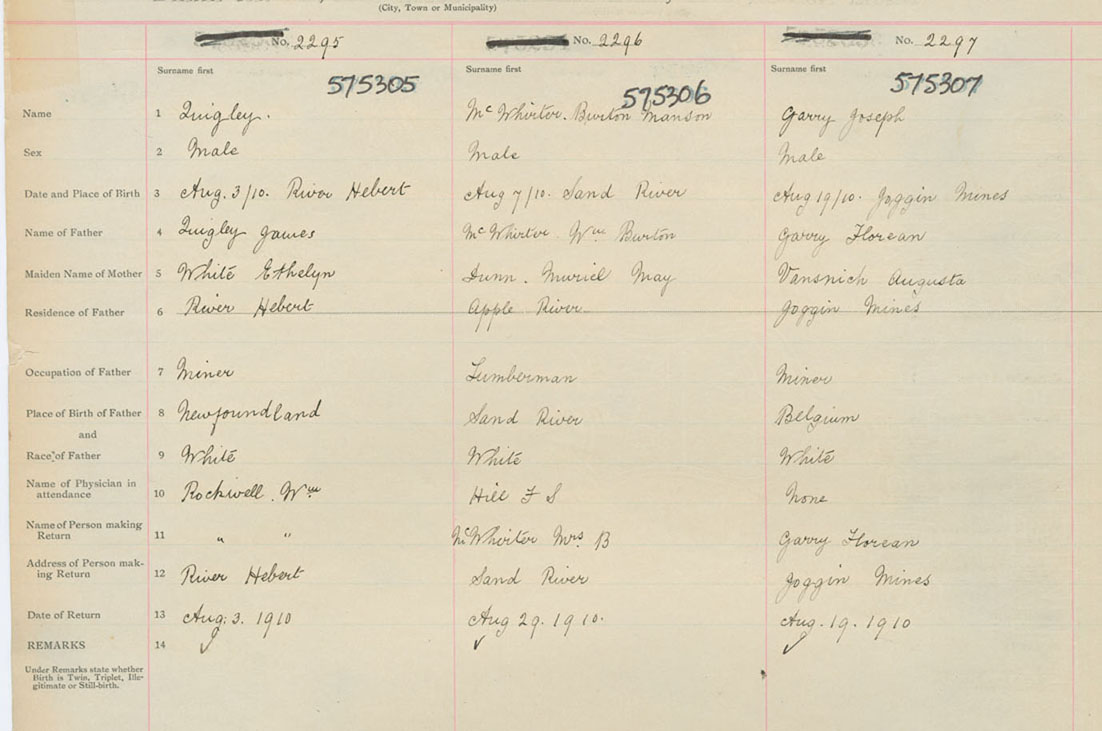 (City, Town or Municipality)
No. 2295 No. 2296 No. 2297
Surname first Surname first Surname first
575305 575306 575307
Name 1 Quigley. Mc Whirter. Burton Manson Garry Joseph
Sex 2 Male Male Male
Date and Place of Birth 3 Aug. 3/10. River Hebert Aug 7/10. Sand River Aug 19/10. Joggin Mines
Name of Father 4 Quigley James Mc Whirter. Wm Burton Garry Florean
Maiden Name of Mother 5 White Ethelyn Dunn. Muriel May Vansnich Augusta
Residence of Father 6 River Hebert Apple River Joggin Mines
Occupation of Father 7 Miner Lumberman Miner
Place of Birth of Father 8 Newfoundland Sand River Belgium
and
Race of Father 9 White White White
Name of Physician in
attendance 10 Rockwell. Wm Hill F S None
Name of Person making
Return 11 " " McWhirter Mrs. B Garry Florean
Address of Person mak-
ing Return 12 River Hebert Sand River Joggin Mines
Date of Return 13 Aug. 3. 1910 Aug 29. 1910. Aug. 19. 1910
REMARKS 14
Under Remarks state whether
Birth is Twin, Triplet, Ille-
gitimate or Still-birth.